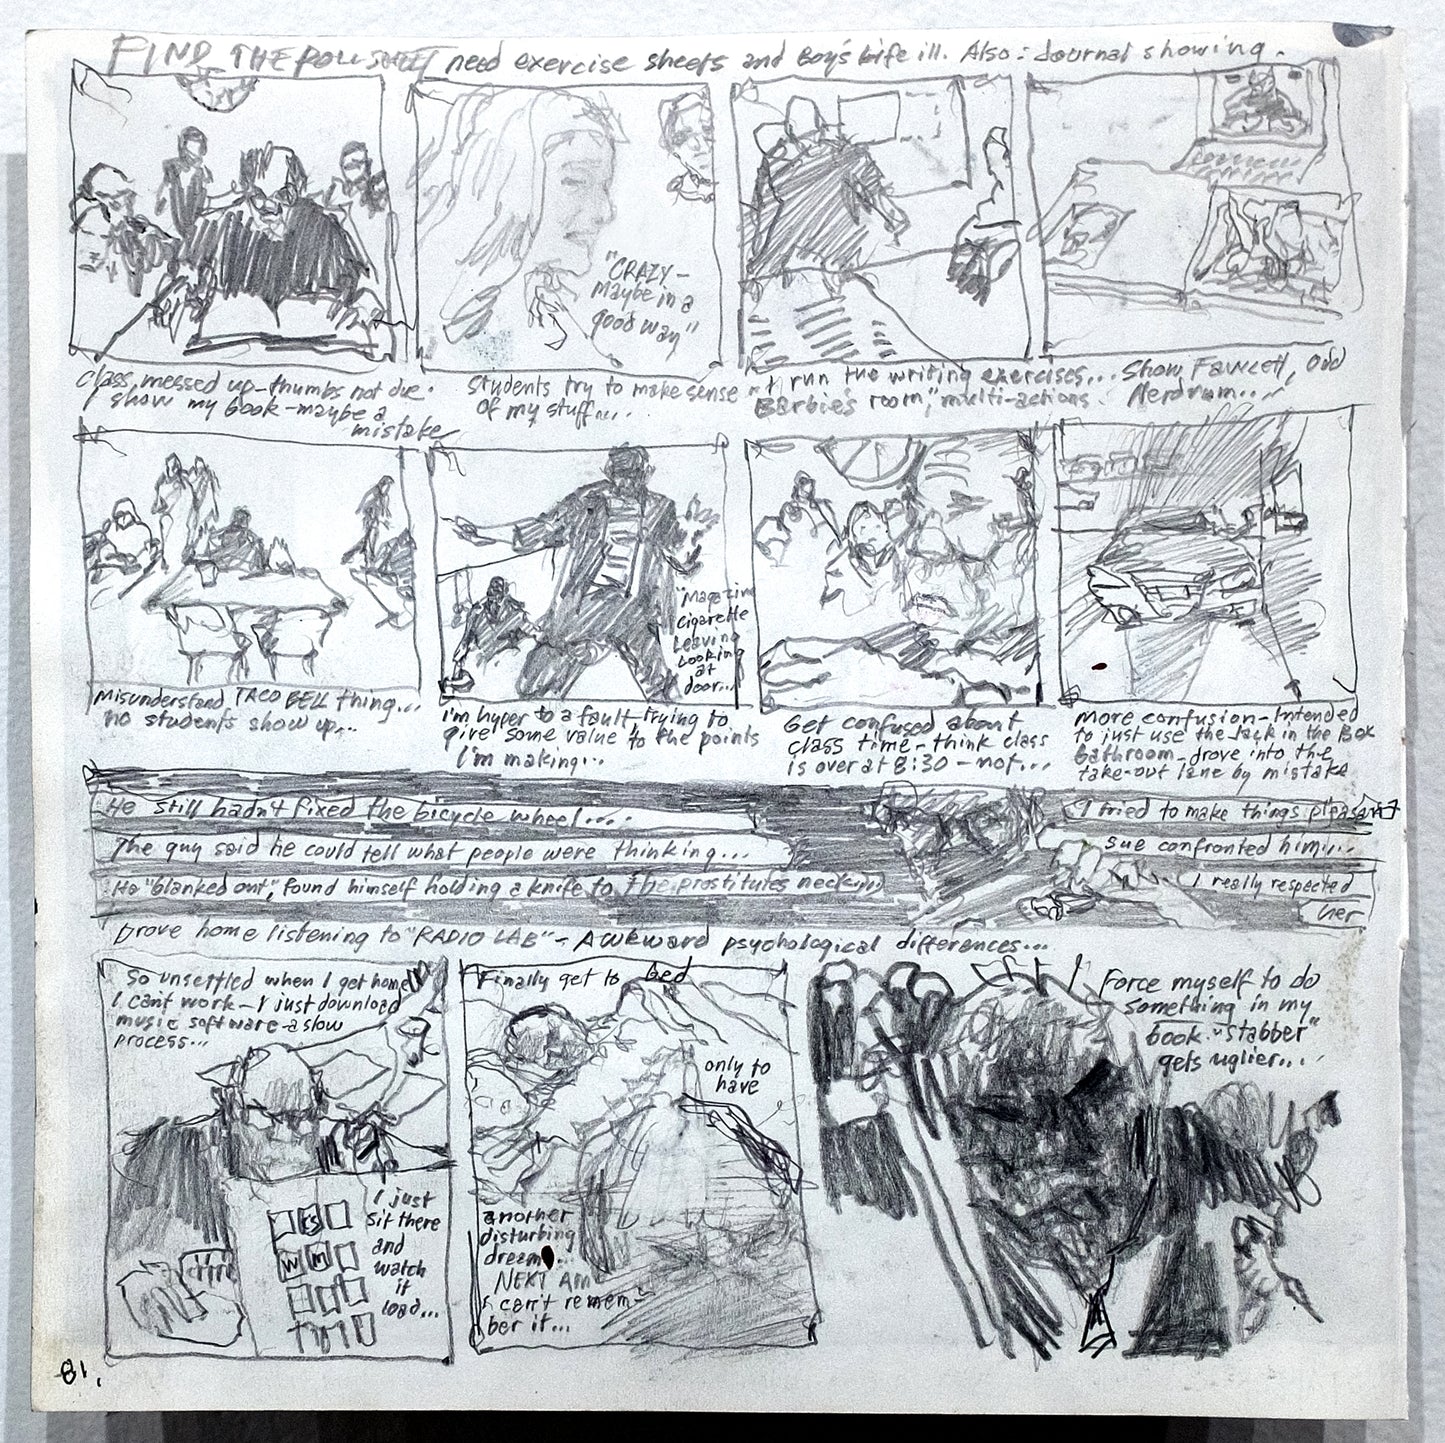 FIND THE ROLL SHEET need exercise sheets and Boy's Life ill. Also: Journal showing.
"CRAZY-
maybe in a
good way"
Class messed up-thumbs not due.
I show my book-maybe a
mistake
Students try to make sense
of my stuff....
I run the writing exercises...
Barbie's room," multi-actions.
Show Fawcett, Odd
Nerdrum...
"Magazine
Cigarette
Leaving
Looking
at
door...
Misunderstand TACO BELL thing...
no students show up...
i'm hyper to a fault-trying to
give some value to the points
I'm making...
Get confused about
class time-think class
is over at 8:30-not...
more confusion-intended
to just use the Jack in the Box
bathroom-drove into the
take-out lane by mistake
He still hadn't fixed the bicycle wheel....
The guy said he could tell what people were thinking...
He "blanked out", found himself holding a knife to the prostitutes neck....
I tried to make things pleasant
Sue confronted him....
I really respected
her
Drove home listening to "RADIO LAB"-Awkward psychological differences...
So unsettled when I get home
I can't work-I just download
music software-a slow
process...
I just
sit there
and
watch
it
load...
Finally get to bed
only to
have
another
disturbing
dream...
NEXT AM
I can't remem-
ber it...
Force myself to do
something in my
book-"Stabber"
gets uglier....
81.